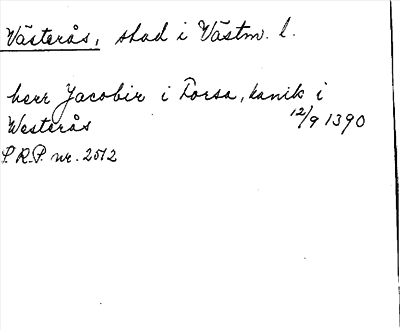 Västerås, stad i Västm. l.
herr Jacobir i Forsa, kanik i
Westerås 12/9 1390
S.R.P. nr. 2512